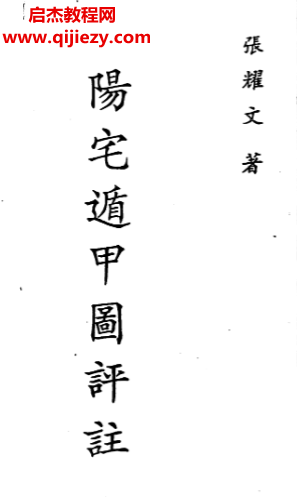 启杰教程网
www.qijiezy.com
張耀文 著
陽宅遁甲圖評註